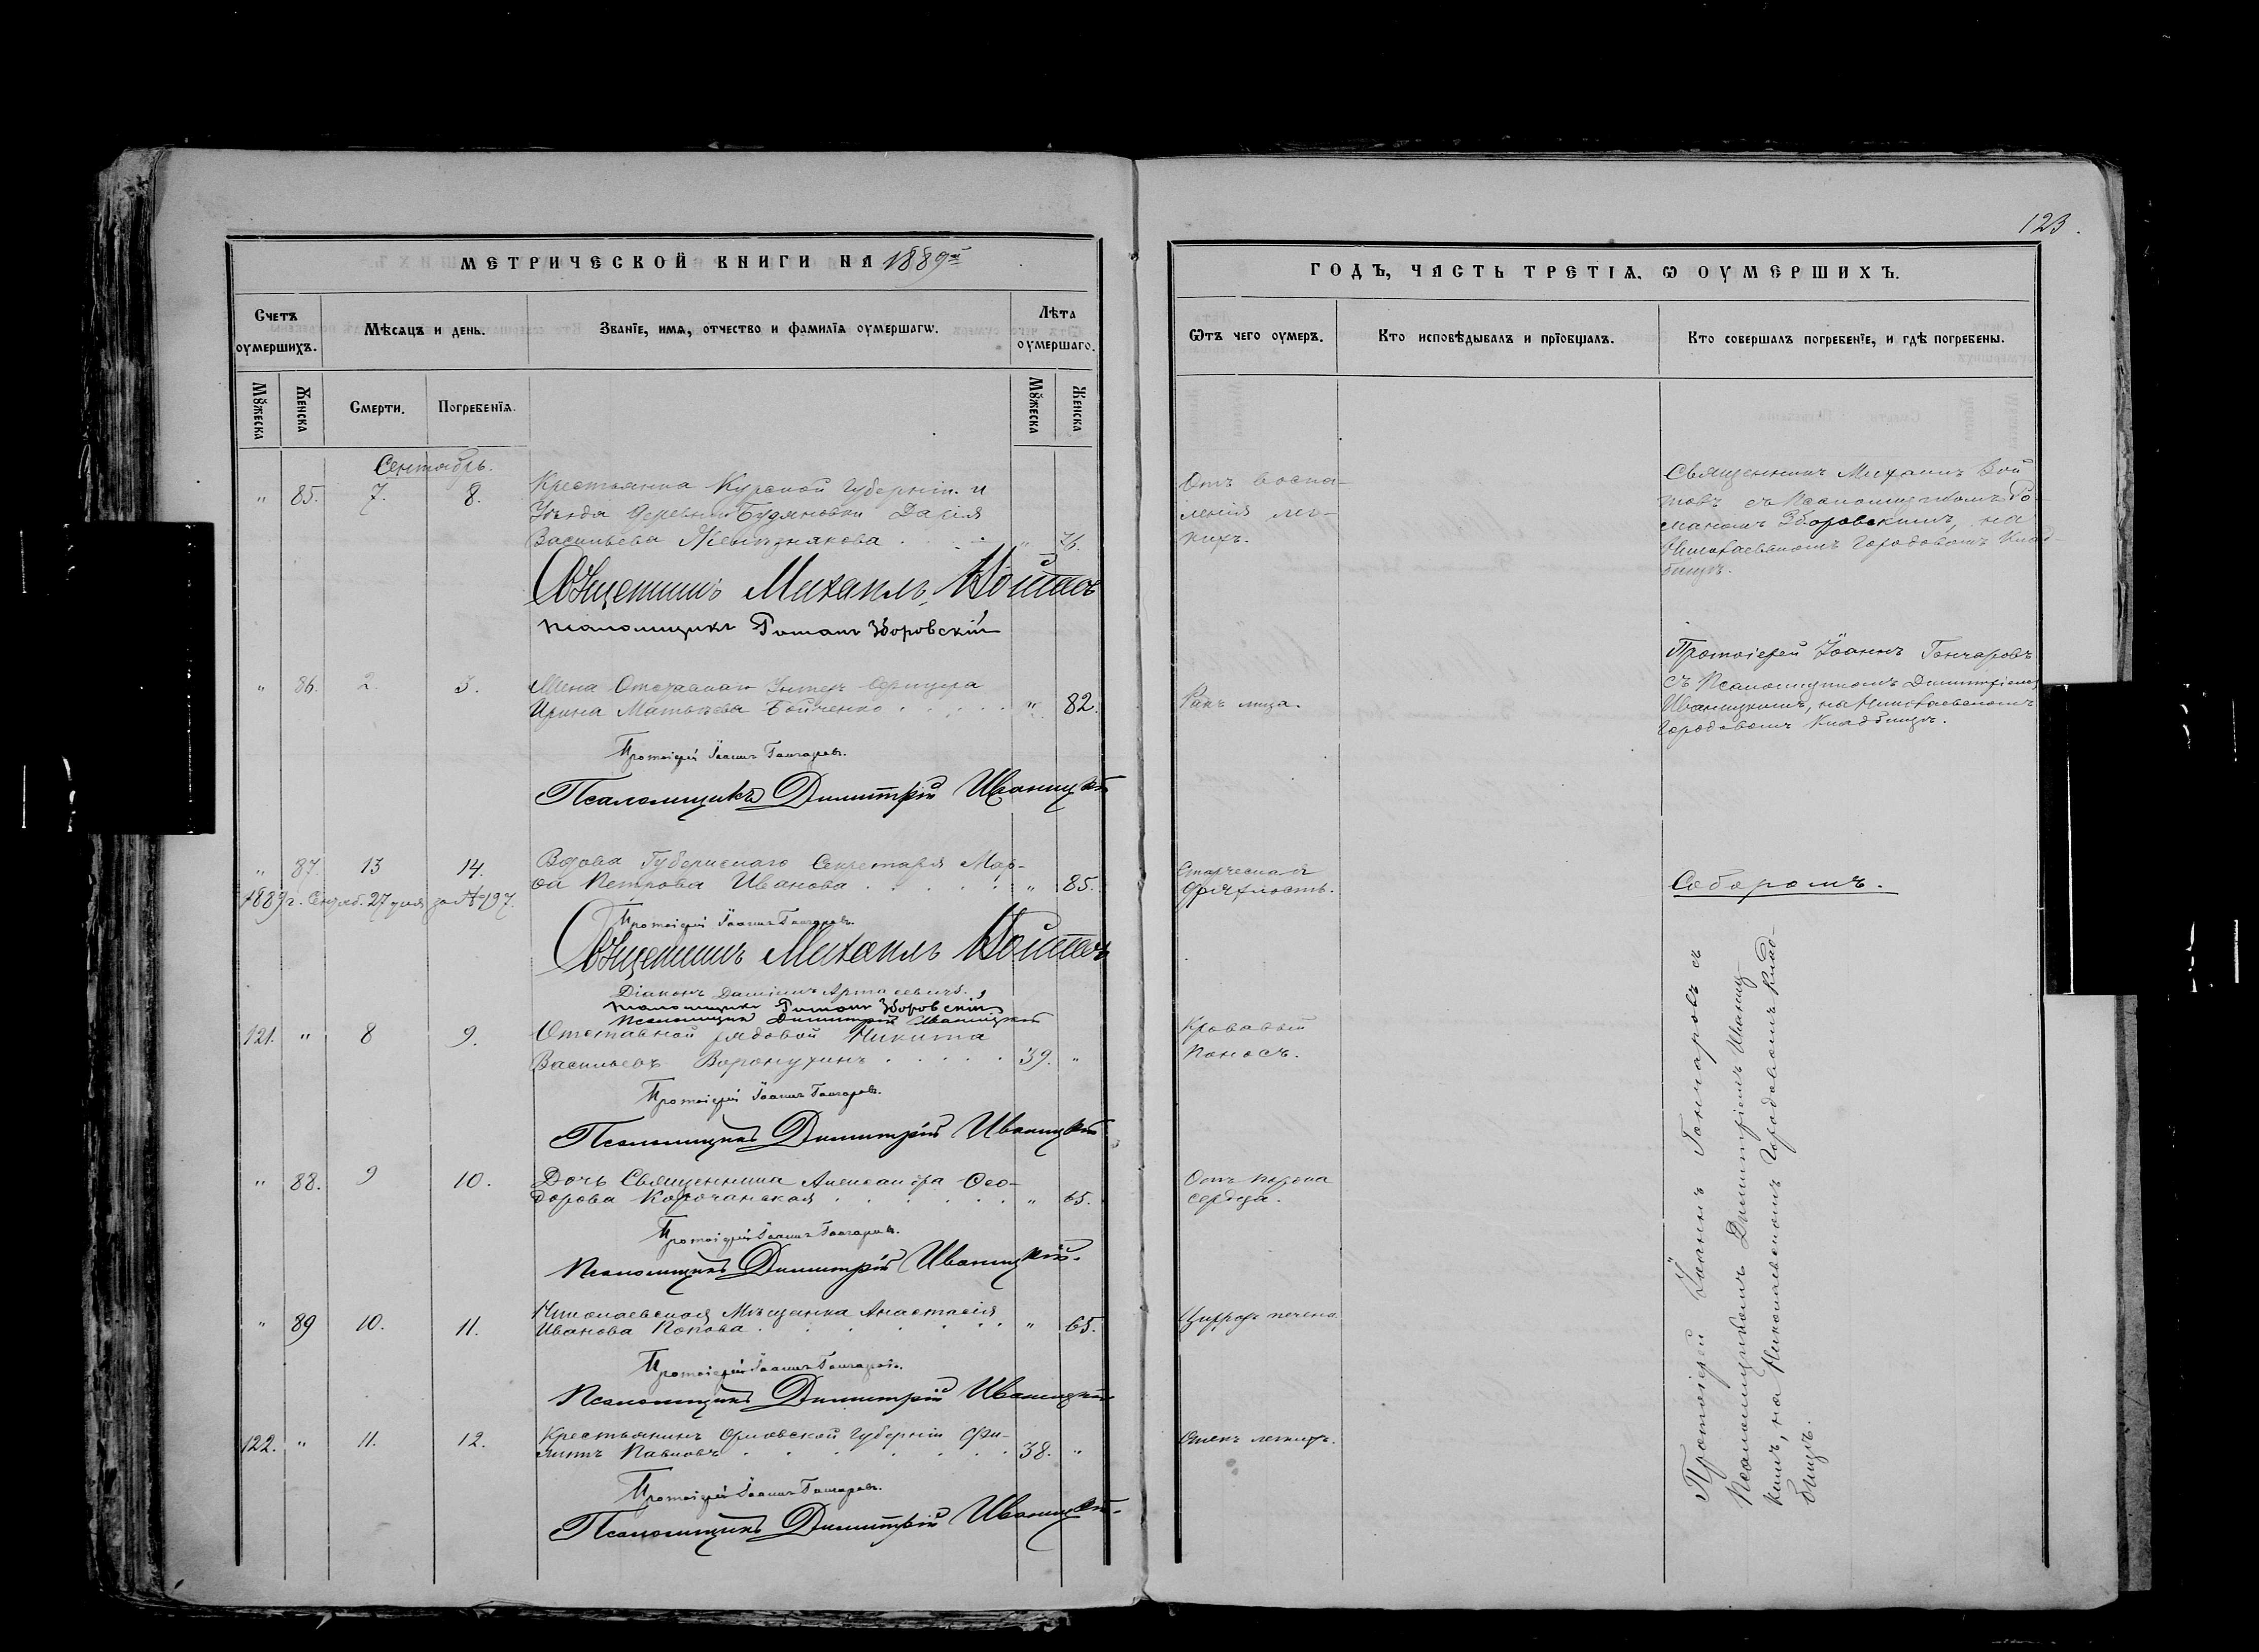 123.
МЕТРИЧЕСКОЙ КНИГИ НА 1889й
ГОДЪ, ЧАСТЬ ТРЕТІѦ, Ѡ ОУМЕРШИХЪ.
Счетъ оумершихъ.
Мѣсяцъ и день.
Званїе, имѧ, отчество и фамилїѧ оумершагѡ.
Лѣта оумершаго.
Ѡтъ чего оумеръ.
Кто исповѣдывалъ и прїобщалъ.
Кто совершалъ погребенїе, и гдѣ погребены.
Мꙋжеска
Женска
Смерти.
Погребенїѧ.
Мꙋжеска
Женска
Сентябрь.
„ 85. 7. 8.
Крестьянка Курской Губерніи и
Уѣзда деревни Будановки Дарія
Васильева
76.
Отъ воспа-
ленія лег-
кихъ.
Священникъ Михаилъ Вой
товъ съ Псаломщикомъ Ро-
маномъ Зборовскимъ, на
Николаевскомъ Городовомъ Клад-
бищѣ.
Священникъ Михаилъ Войтовъ
Псаломщикъ Романъ Зборовскій
„ 86. 2. 3.
Жена Отставнаго Унтеръ Офицера
Ирина Матвѣева Бойченко . . . . . „ 82.
Ракъ лица.
Протоіерей Іоаннъ Гончаровъ
съ Псаломщикомъ Димитріемъ
Иваницкимъ, на Николаевскомъ
Городовомъ Кладбищѣ.
Протоіерей Іоаннъ Гончаровъ.
Псаломщикъ Димитрій Иваницкій
„ 87. 13 14.
Вдова Губернскаго Секретаря Мар-
ѳа Петрова Иванова . . . . . . „ 85.
Старческая
дряхлость.
Соборомъ.
1889 г. Сентяб. 27 дня за № 197.
Протоіерей Іоаннъ Гончаровъ.
Священникъ Михаилъ Войтовъ
Діаконъ
Псаломщикъ Романъ Зборовскій
Псаломщикъ Димитрій Иваницкій
121. „ 8 9.
Отставной рядовой Никита
Васильевъ Воронухинъ . . . . . 39. „
Кровавый
поносъ.
Протоіерей Іоаннъ Гончаровъ.
Псаломщикъ Димитрій Иваницкій
„ 88. 9 10.
Дочь Священника Александра Ѳео-
дорова Корочанская . . . . . . „ 65.
Отъ порока
сердца.
Протоіерей Іоаннъ Гончаровъ.
Псаломщикъ Димитрій Иваницкій.
„ 89 10. 11.
Николаевская Мѣщанка Анастасія
Иванова Попова . . . . . . . „ 65.
Циррозъ печени
Протоіерей Іоаннъ Гончаровъ.
Псаломщикъ Димитрій Иваницкій
122. „ 11. 12.
Крестьянинъ Орловской Губерніи Фи-
липъ Павловъ . . . . . . . 38. „
Отекъ легкихъ.
Протоіерей Іоаннъ Гончаровъ.
Псаломщикъ Димитрій Иваницкій.
Протоіерей Іоаннъ Гончаровъ съ
Псаломщикомъ Димитріемъ Иваниц-
кимъ, на Николаевскомъ Городовомъ Клад-
бищѣ.